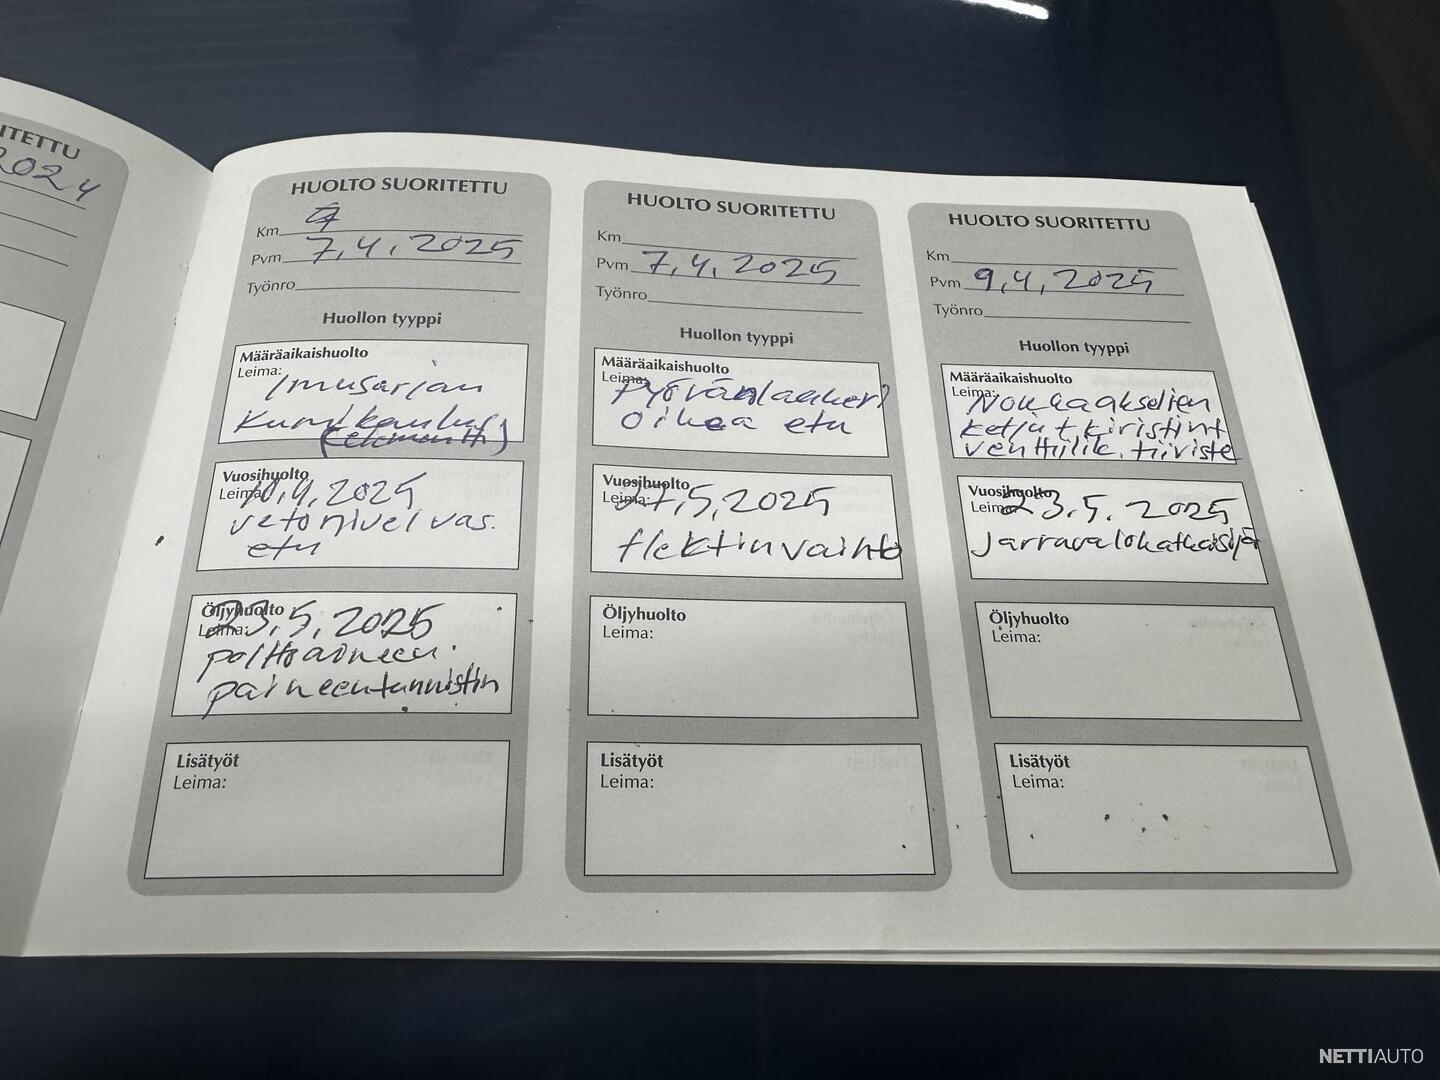 ITETTU
2024
HUOLTO SUORITETTU
Km
Pvm 7.4.2025
Työnro
Huollon tyyppi
Määräaikaishuolto
Leima:
Imusarjan
Kumikaulus
Vuosihuolto
Leima:
.4.2025
vetonivel vas.
etu
Öljyhuolto
Leima:
23.5.2025
polttoaineen
paineentunnistin
Lisätyöt
Leima:
HUOLTO SUORITETTU
Km
Pvm 7.4.2025
Työnro
Huollon tyyppi
Määräaikaishuolto
Leima:
Pyöränlaakeri
oikea etu
Vuosihuolto
Leima:
27.5.2025
flektin vaihto
Öljyhuolto
Leima:
Lisätyöt
Leima:
HUOLTO SUORITETTU
Km
Pvm 9.4.2025
Työnro
Huollon tyyppi
Määräaikaishuolto
Leima:
Nokkaakselien
ketjut kiristint
venttiilik. tiiviste
Vuosihuolto
Leima:
23.5.2025
Jarruvalokatkaisija
Öljyhuolto
Leima:
Lisätyöt
Leima:
NETTIAUTO